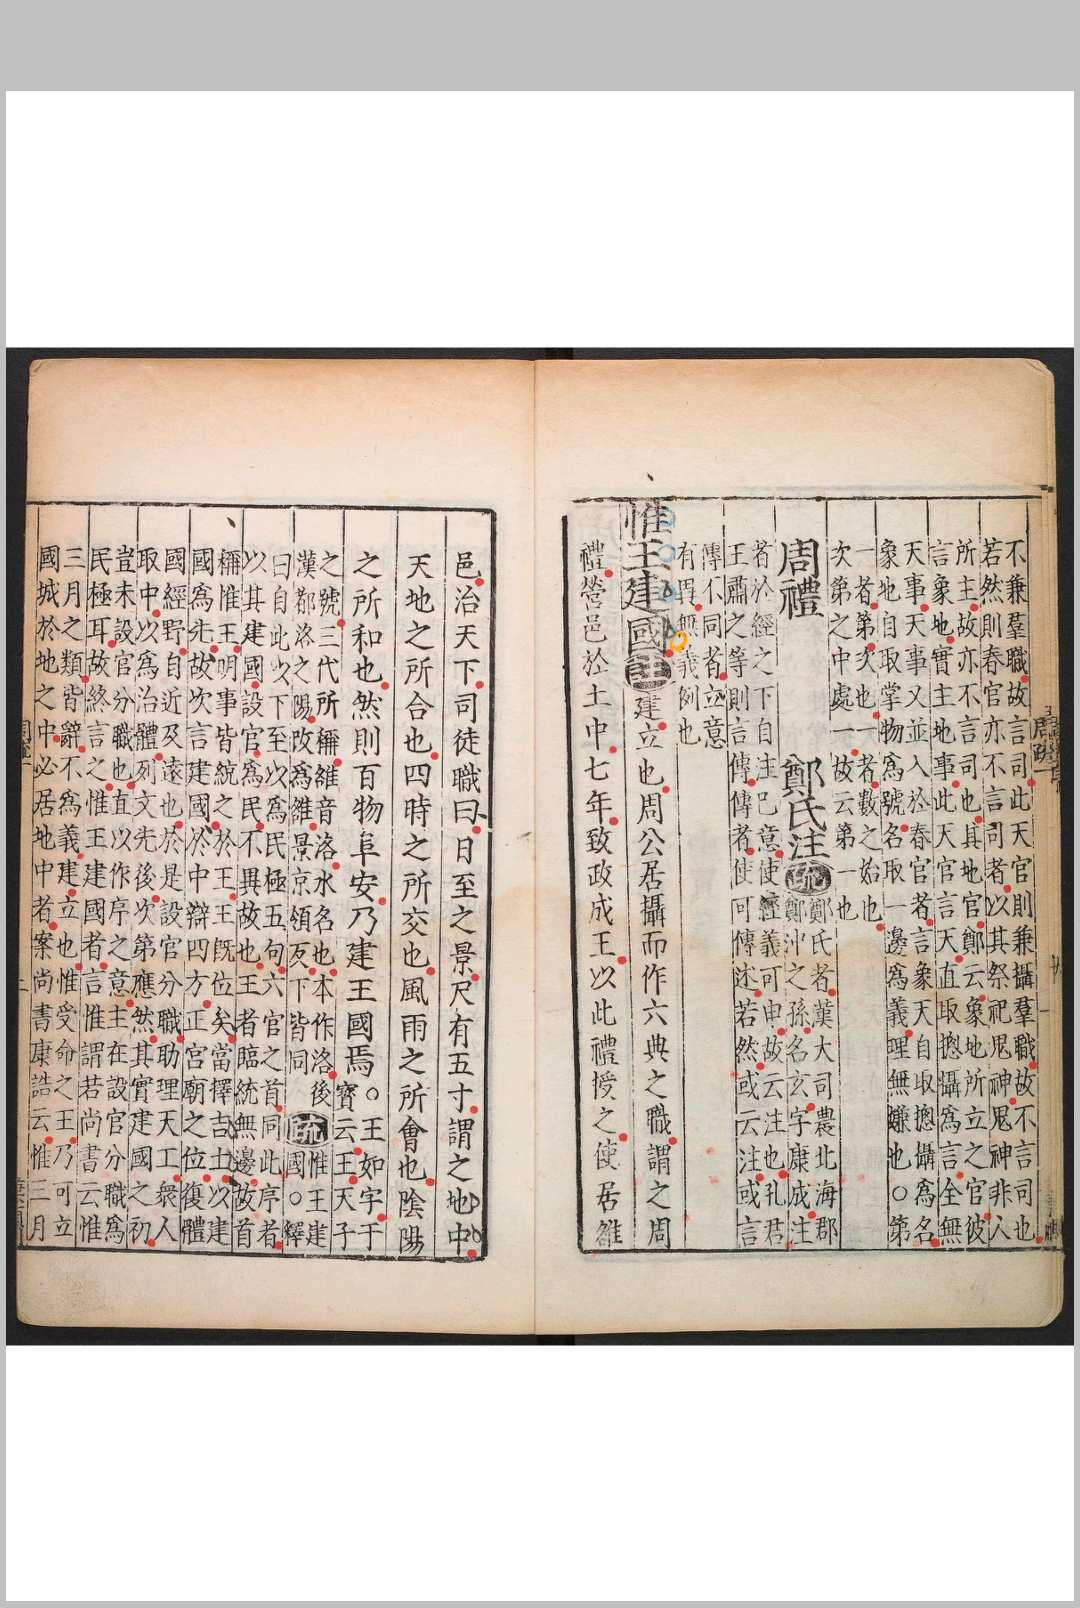 不兼羣職故言司此天官則兼攝羣職故不言司也
若然則春官亦不言司者以其祭祀鬼神鬼神非人
所主故亦不言司也其地官鄭云象地所立之官彼
言象地實主地事此天官言天直取揔攝爲言全無
天事天事又並入於春官者言象天自取揔攝爲名
象地自取掌物爲號名取一邊爲義理無嫌也○第
一者第次也一者數之始也
次第之中處一故云第一也
周禮
鄭氏注
疏
鄭氏者漢大司農北海郡
鄭沖之孫名玄字康成注
者於經之下自注己意使經義可申故云注也孔君
王肅之等則言傳傳者使可傳述若然或云注或言
傳不同者立意
有異無義例也
惟王建國
註
建立也周公居攝而作六典之職謂之周
禮營邑於土中七年致政成王以此禮授之使居雒
邑治天下司徒職曰日至之景尺有五寸謂之地中
天地之所合也四時之所交也風雨之所會也陰陽
之所和也然則百物阜安乃建王國焉
○王如字于
寳云王天子
之號三代所稱雒音洛水名也本作洛後
漢都洛之陽改爲雒景京領反下皆同
疏
惟王建
國○釋
曰自此以下至以爲民極五句六官之首同此序者
以其建國設官爲民不異故也王者臨統無邊故首
稱惟王明事皆統之於王王旣位矣當擇吉土以建
國爲先故次言建國於中辯四方正宮廟之位復體
國經野自近及遠也於是設官分職助理天工衆人
取中以爲治體列文先後次第應然其實建國之初
豈未設官分職也直以作序之意主在設官分職爲
民極耳故終言之惟王建國者言惟謂若尚書云惟
三月之類皆辭不爲義建立也惟受命之王乃可立
國城於地之中必居地中者案尚書康誥云惟三月
二